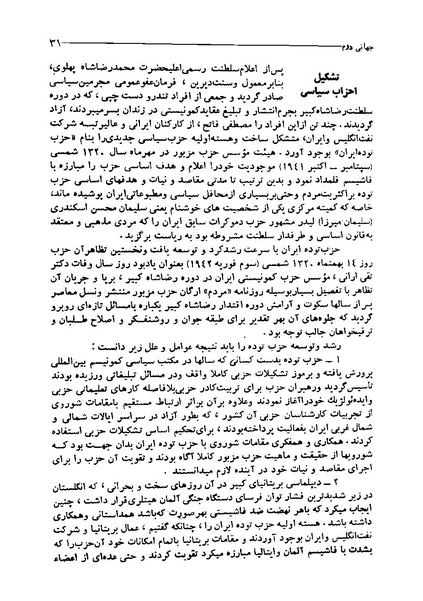 جهانی دوم ۳۱
تشکیل
احزاب سیاسی
پس از اعلام سلطنت رسمی اعلیحضرت محمدرضاشاه پهلوی،
بنابر معمول وسنت دیرین، فرمان عفوعمومی مجرمین سیاسی
صادر گردید و جمعی از افراد تندرو دست چپی، که در دوره
سلطنت رضاشاه کبیر بجرم انتشار و تبلیغ عقاید کمونیستی در زندان بسر میبردند، آزاد
گردیدند. چند تن از این افراد را مصطفی فاتح، از کارکنان ایرانی و عالیرتبه شرکت
نفت انگلیس وایران، متشکل ساخت وهسته اولیه حزب سیاسی جدیدی را بنام «حزب
توده ایران» بوجود آورد. هیئت مؤسس حزب مزبور در مهرماه سال ۱۳۲۰ شمسی
(سپتامبر - اکتبر ۱۹۴۱) موجودیت خود را اعلام و هدف اساسی حزب را مبارزه با
فاشیسم قلمداد نمود و بدین ترتیب تا مدتی مقاصد و نیات و هدفهای اساسی حزب
توده براکثریت مردم وحتی بر بسیاری از محافل سیاسی ومطبوعاتی ایران پوشیده ماند،
خاصه که کمیته مرکزی یکی از شخصیت های خوشنام یعنی سلیمان محسن اسکندری
(سلیمان میرزا) لیدر مشهور حزب دموکرات سابق ایران را که مردی مذهبی و معتقد
به قانون اساسی و طرفدار سلطنت مشروطه بود به ریاست برگزید.
حزب توده ایران با سرعت رشد کرد و توسعه یافت ونخستین تظاهر آن حزب
روز ۱۴ بهمنماه ۱۳۲۰ شمسی (سوم فوریه ۱۹۴۲) بعنوان یادبود روز سال وفات دکتر
تقی ارانی، مؤسس حزب کمونیستی ایران در دوره رضاشاه کبیر، برپا و جریان آن
تظاهر با تفصیل بسیار بوسیله روزنامه «مردم» ارگان حزب مزبور منتشر ونسل معاصر
پس از سالها سکوت و آرامش دوره اقتدار رضاشاه کبیر یکباره بامسائل تازه ای روبرو
گردید که جلوه های آن بهر تقدیر برای طبقه جوان و روشنفکر و اصلاح طلبان و
ترقیخواهان جالب توجه بود.
رشد وتوسعه حزب توده را باید نتیجه عوامل و علل زیر دانست:
۱ - حزب توده بدست کسانی که سالها در مکتب سیاسی کمونیسم بین المللی
پرورش یافته و برموز تشکیلات حزبی کاملا واقف ودر مسائل تبلیغاتی ورزیده بودند
تأسیس گردید ورهبران حزب برای تربیت کادر حزبی بلافاصله کارهای تعلیماتی حزبی
وایدئولژیک خود را آغاز نمودند وعلاوه برآن براثر ارتباط مستقیم بامقامات شوروی
از تجربیات کارشناسان حزبی آن کشور، که بطور آزاد در سراسر ایالات شمالی و
شمال غربی ایران بفعالیت پرداخته بودند، برای تحکیم اساس تشکیلات حزبی استفاده
کردند. همکاری و همفکری مقامات شوروی با حزب توده ایران بدان جهت بود کـه
شورویها از حقیقت و ماهیت حزب مزبور کاملا آگاه بودند و تقویت آن حزب را برای
اجرای مقاصد و نیات خود در آینده لازم میدانستند.
۲ - دیپلماسی بریتانیای کبیر در آن روزهای سخت و بحرانی، که انگلستان
در زیر شدیدترین فشار توان فرسای دستگاه جنگی آلمان هیتلری قرار داشت، چنین
ایجاب میکرد که باهر نهضت ضد فاشیستی بهر صورت که باشد همداستانی وهمکاری
داشته باشد. هسته اولیه حزب توده ایران را (چنانکه گفتیم، عمال بریتانیا و شرکت
نفت انگلیس وایران بوجود آوردند و مقامات بریتانیا باتمام امکانات خود آن حزب را که
بشدت با فاشیسم آلمان وایتالیا مبارزه میکرد تقویت کردند و حتی عده ای از اعضاء